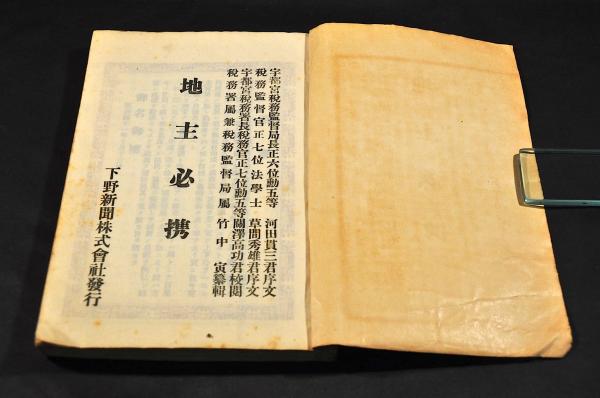 宇都宮税務監督局長正六位勳五等 河田貫三君序文
税務監督官正七位法學士 草間秀雄君序文
宇都宮税務署長税務官正七位勳五等關澤高功君校閲
税務署屬兼税務監督局屬 竹中 寅纂輯
地主必携
下野新聞株式會社發行